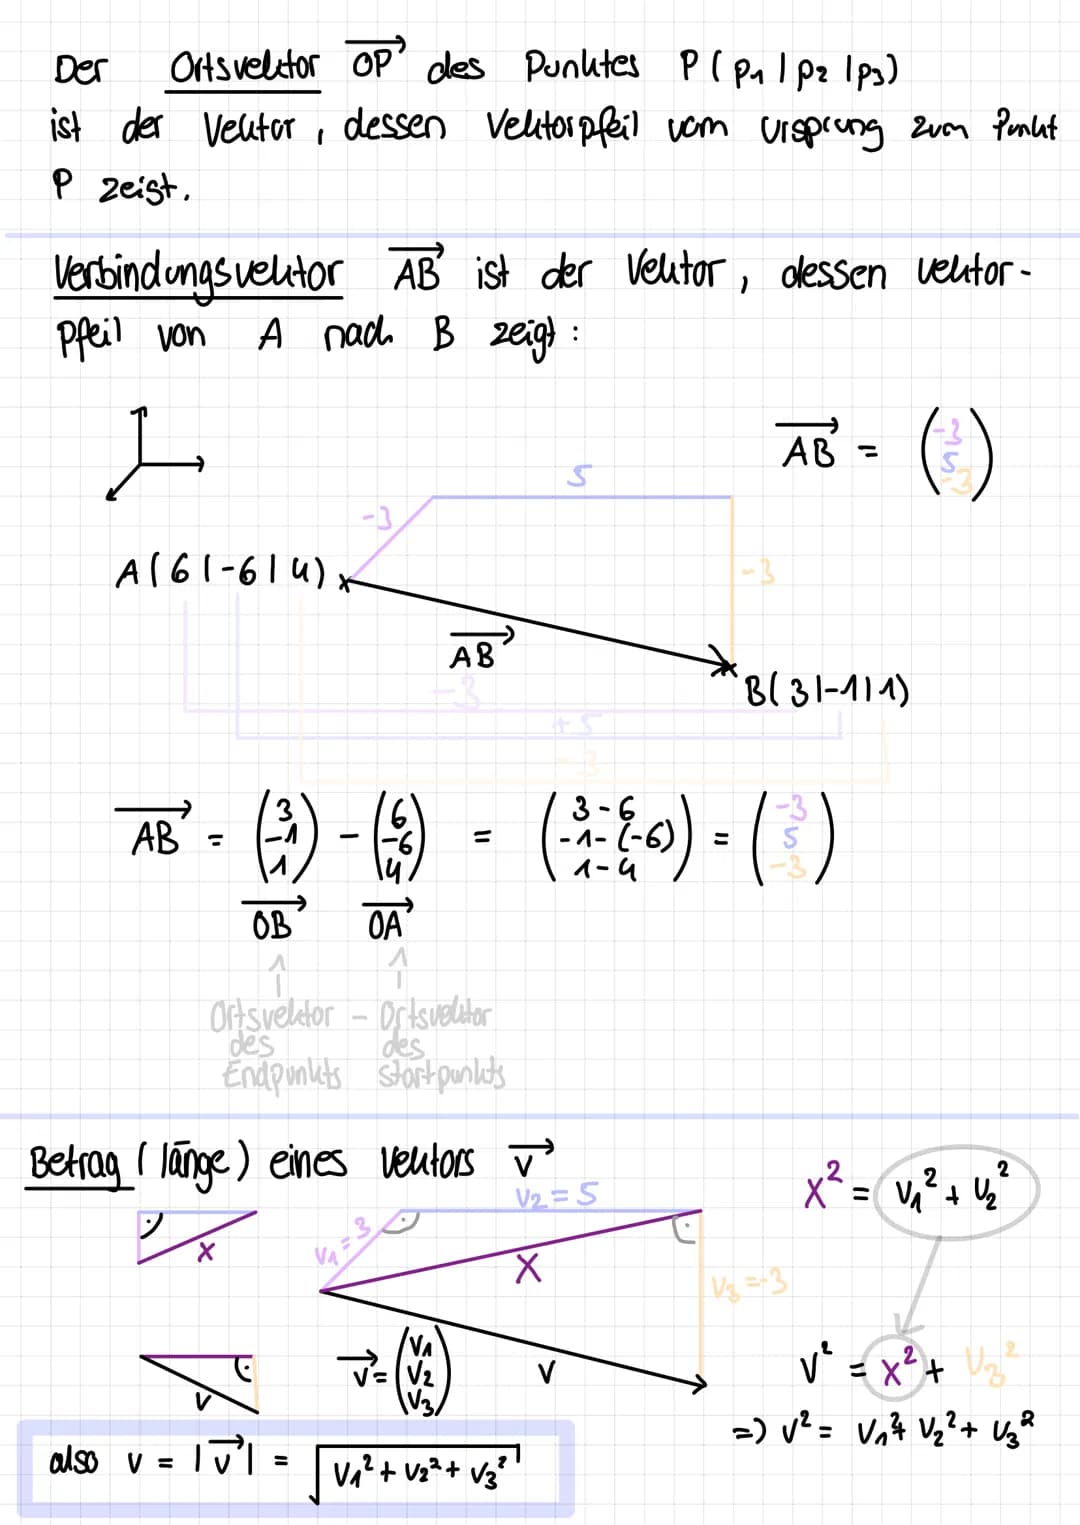 Der Ortsvektor OP des Punktes P(p1|p2|p3)
ist der Vektor, dessen Vektorpfeil vom Ursprung zum Punkt
P zeigt.
Verbindungsvektor AB ist der Vektor, dessen Vektor-
pfeil von A nach B zeigt:
AB = (-3 5 -3)
5
-3
A(6|-6|4)
-3
AB
B(3|-1|1)
-3
+5
-3
AB = (3 -1 1) - (6 -6 4) = (3-6 -1-(-6) 1-4) = (-3 5 -3)
OB OA
Ortsvektor - Ortsvektor
des des
Endpunkts Startpunkts
Betrag (länge) eines Vektors v
x² = v1² + v2²
v2 = 5
v1 = 3
x
x
v3 = -3
v
v = (v1 v2 v3)
v
v² = x² + v3²
=> v² = v1² + v2² + v3²
also v = |v| = √v1² + v2² + v3²